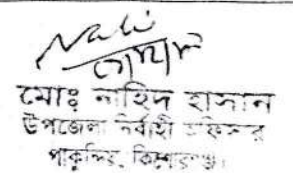 মোঃ নাহিদ হাসান
উপজেলা নির্বাহী অফিসার
পাকুন্দিয়া, কিশোরগঞ্জ।